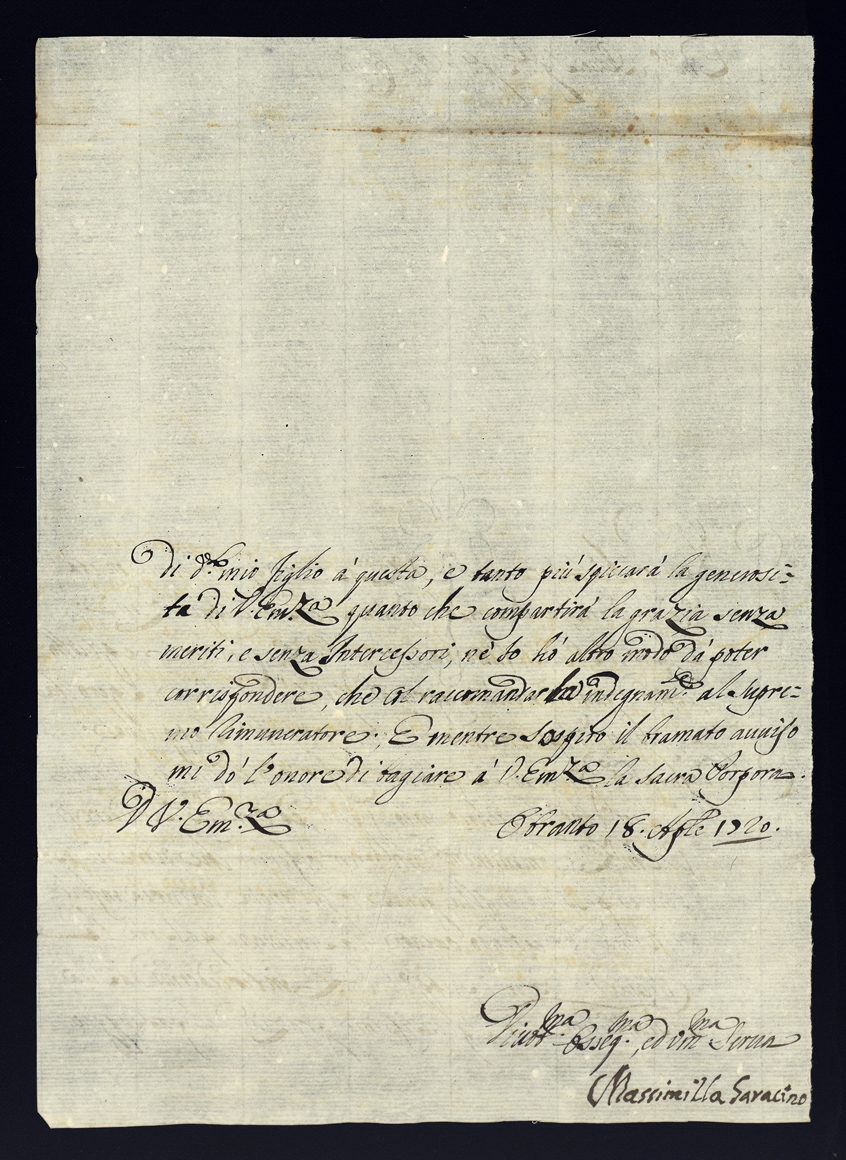 Di d.to mio figlio à questa, e tanto più spiccarà la generosi=
ta di V. Em.za quanto che compartirà la grazia senza
meriti, e senza Intercessori, nè Io hò altro modo dà poter
corrispondere, che al raccomandarla indegnam.te al Supre=
mo Rimuneratore; E mentre Sospiro il bramato avviso
mi dò l'onore di bagiare à V. Em.za la Sacra Porpora.
D V. Em.za Otranto 18. Aple 1720.
Divot.ma Osseq.ma, ed um.ma Serva
Massimilla Saracino